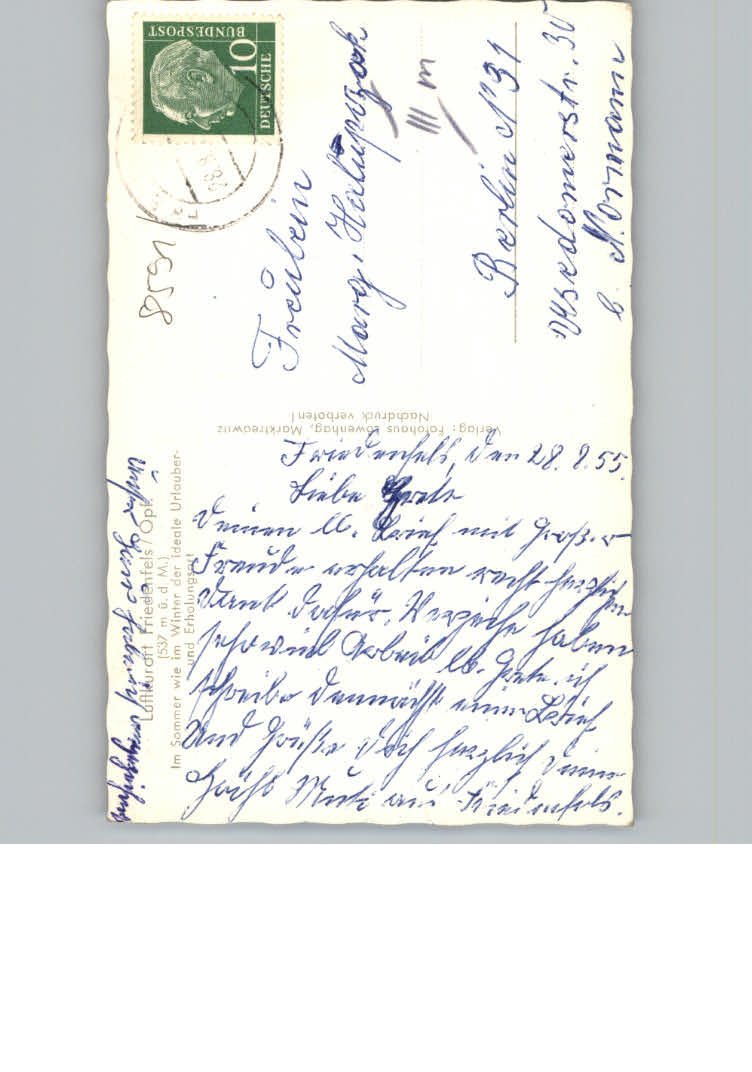 Luftkurort Friedenfels/Opf.
(537 m ü. d. M.)
Im Sommer wie im Winter der ideale Urlauber-
und Erholungsort
Friedenfels, den 28. 8. 55.
Liebe Grete
Deinen lb. Brief mit großer
Freude erhalten recht herzlichen
Dank dafür. Verzeihe haben
sehr viel Arbeit lb. Grete. ich
schreibe demnächst einen Brief
Und grüße Dich herzlich Deine
Muti aus Friedenfels.
Verlag: Fotohaus Löwenhag, Marktredwitz
Nachdruck verboten!
DEUTSCHE
BUNDESPOST
10
8591
Fräulein
Marg. Halupzok
III m
Berlin N 31
Usedomerstr. 30
b. Normann